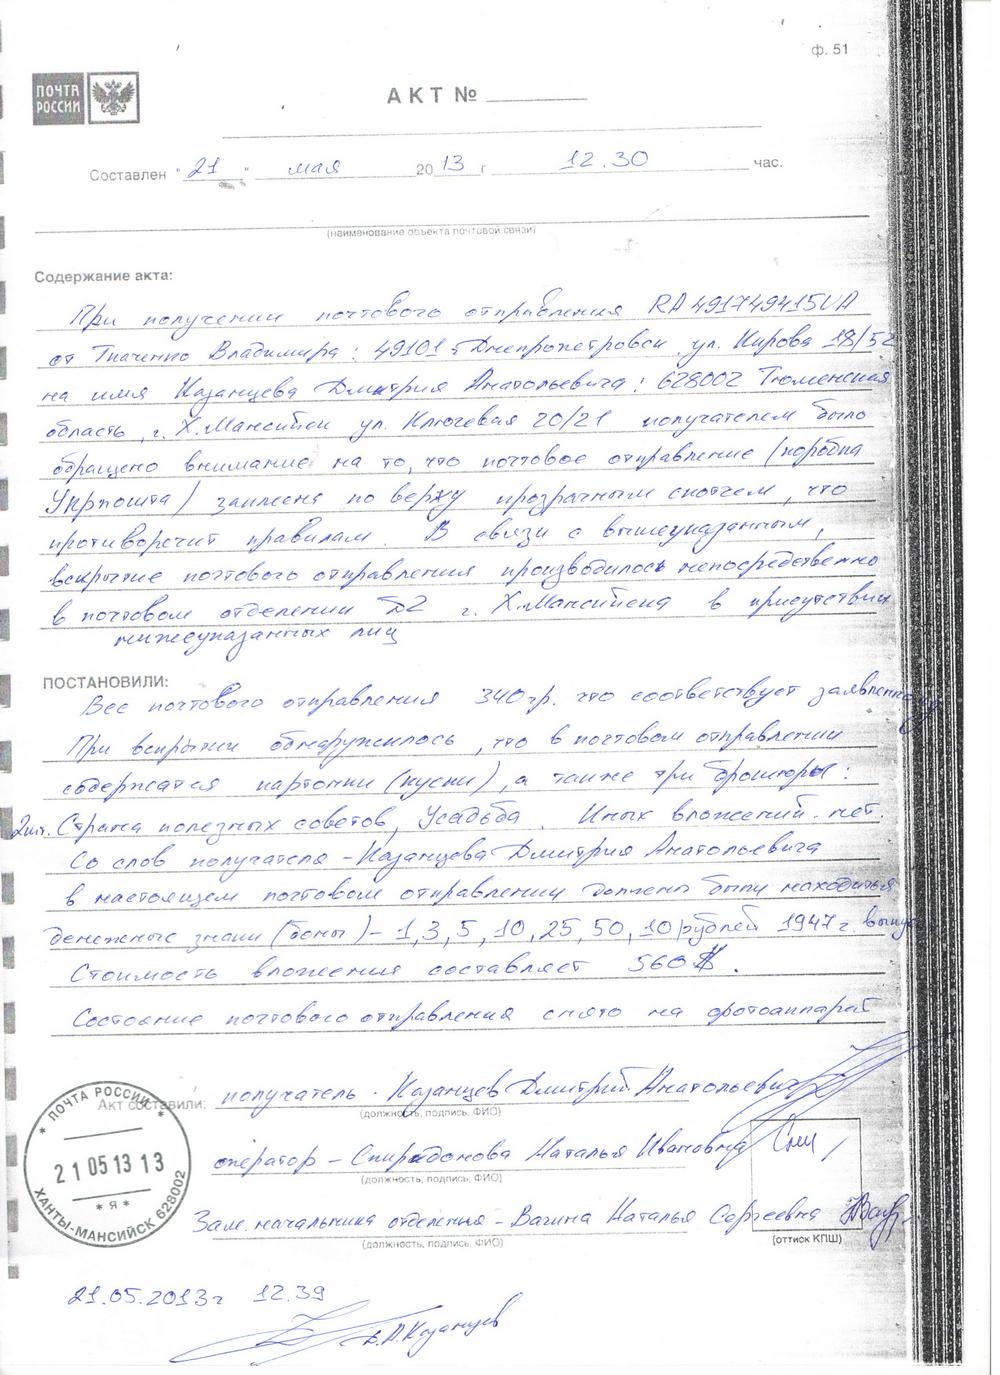 ф. 51
ПОЧТА
РОССИИ
АКТ №
Составлен "21" мая 2013 г 12.30 час.
(наименование объекта почтовой связи)
Содержание акта:
При получении почтового отправления RA491749415UA
от Ткаченко Владимира: 49101 г. Днепропетровск ул. Кирова 18/52
на имя Казанцева Дмитрия Анатольевича: 628002 Тюменская
область, г. Х.Мансийск ул. Ключевая 20/21 получателем было
обращено внимание на то, что почтовое отправление (коробка
Укрпошта) заклеена по верху прозрачным скотчем, что
противоречит правилам. В связи с вышеуказанным,
вскрытие почтового отправления производилось непосредственно
в почтовом отделении №2 г. Х.Мансийска в присутствии
нижеуказанных лиц
ПОСТАНОВИЛИ:
Вес почтового отправления 340гр. что соответствует заявленному
При вскрытии обнаружилось, что в почтовом отправлении
содержатся картонки (куски), а также три брошюры:
2шт. Страна полезных советов, Усадьба. Иных вложений нет.
Со слов получателя - Казанцева Дмитрия Анатольевича
в настоящем почтовом отправлении должены были находиться
денежные знаки (боны) - 1,3,5,10,25,50,10 рублей 1947г. выпу
Стоимость вложения составляет 560$.
Состояние почтового отправления снято на фотоаппарат
Акт составили: получатель - Казанцев Дмитрий Анатольевич
(должность, подпись, ФИО)
оператор - Спиридонова Наталья Ивановна
(должность, подпись, ФИО)
Зам. начальника отделения - Вагина Наталья Сергеевна
(должность, подпись, ФИО)
(оттиск КПШ)
ПОЧТА РОССИИ
21 05 13 13
* Я *
ХАНТЫ-МАНСИЙСК 628002
21.05.2013г 12.39
Д.А.Казанцев